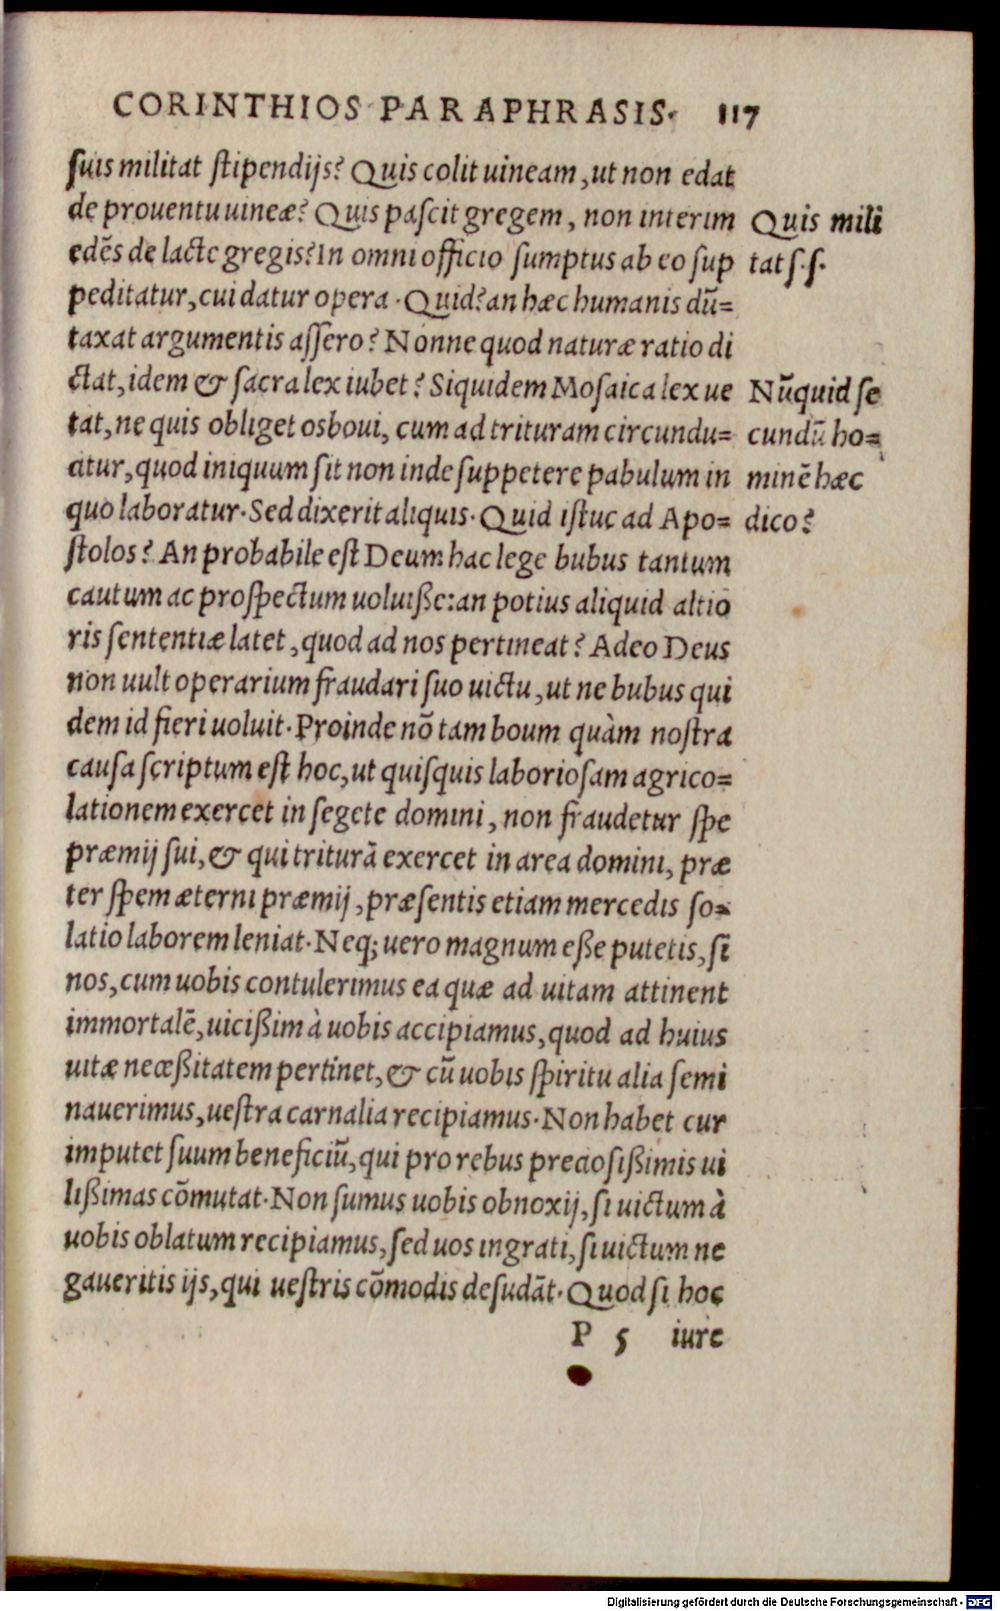 CORINTHIOS PARAPHRASIS. 117
ſuis militat ſtipendijs? Quis colit uineam, ut non edat
de prouentu uineæ? Quis paſcit gregem, non interim
edẽs de lacte gregis? In omni officio ſumptus ab eo ſup
peditatur, cui datur opera. Quid? an hæc humanis dũ=
taxat argumentis aſſero? Nonne quod naturæ ratio di
ctat, idem & ſacra lex iubet? Siquidem Moſaica lex ue
tat, ne quis obliget os boui, cum ad trituram circundu=
citur, quod iniquum ſit non inde ſuppetere pabulum in
quo laboratur. Sed dixerit aliquis. Quid iſtuc ad Apo=
ſtolos? An probabile eſt Deum hac lege bubus tantum
cautum ac proſpectum uoluiße: an potius aliquid altio
ris ſententiæ latet, quod ad nos pertineat? Adeo Deus
non uult operarium fraudari ſuo uictu, ut ne bubus qui
dem id fieri uoluit. Proinde nõ tam boum quàm noſtra
cauſa ſcriptum eſt hoc, ut quiſquis laborioſam agrico=
lationem exercet in ſegete domini, non fraudetur ſpe
præmij ſui, & qui triturã exercet in area domini, præ
ter ſpem æterni præmij, præſentis etiam mercedis ſo=
latio laborem leniat. Neq; uero magnum eße putetis, ſi
nos, cum uobis contulerimus ea quæ ad uitam attinent
immortalẽ, uicißim à uobis accipiamus, quod ad huius
uitæ neceßitatem pertinet, & cũ uobis ſpiritualia ſemi
nauerimus, ueſtra carnalia recipiamus. Non habet cur
imputet ſuum beneficiũ, qui pro rebus precioſißimis ui
lißimas cõmutat. Non ſumus uobis obnoxij, ſi uictum à
uobis oblatum recipiamus, ſed uos ingrati, ſi uictum ne
gaueritis ijs, qui ueſtris cõmodis deſudãt. Quod ſi hoc
P 5 iure
Quis mili
tat ſ. ſ.
Nũquid ſe
cundũ ho=
minẽ hæc
dico?
Digitalisierung gefördert durch die Deutsche Forschungsgemeinschaft - DFG